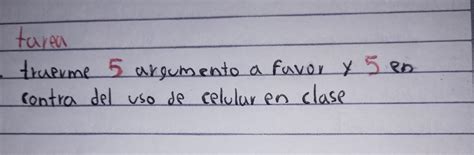 tarea
. truerme 5 argumento a favor y 5 en
contra del uso de celular en clase